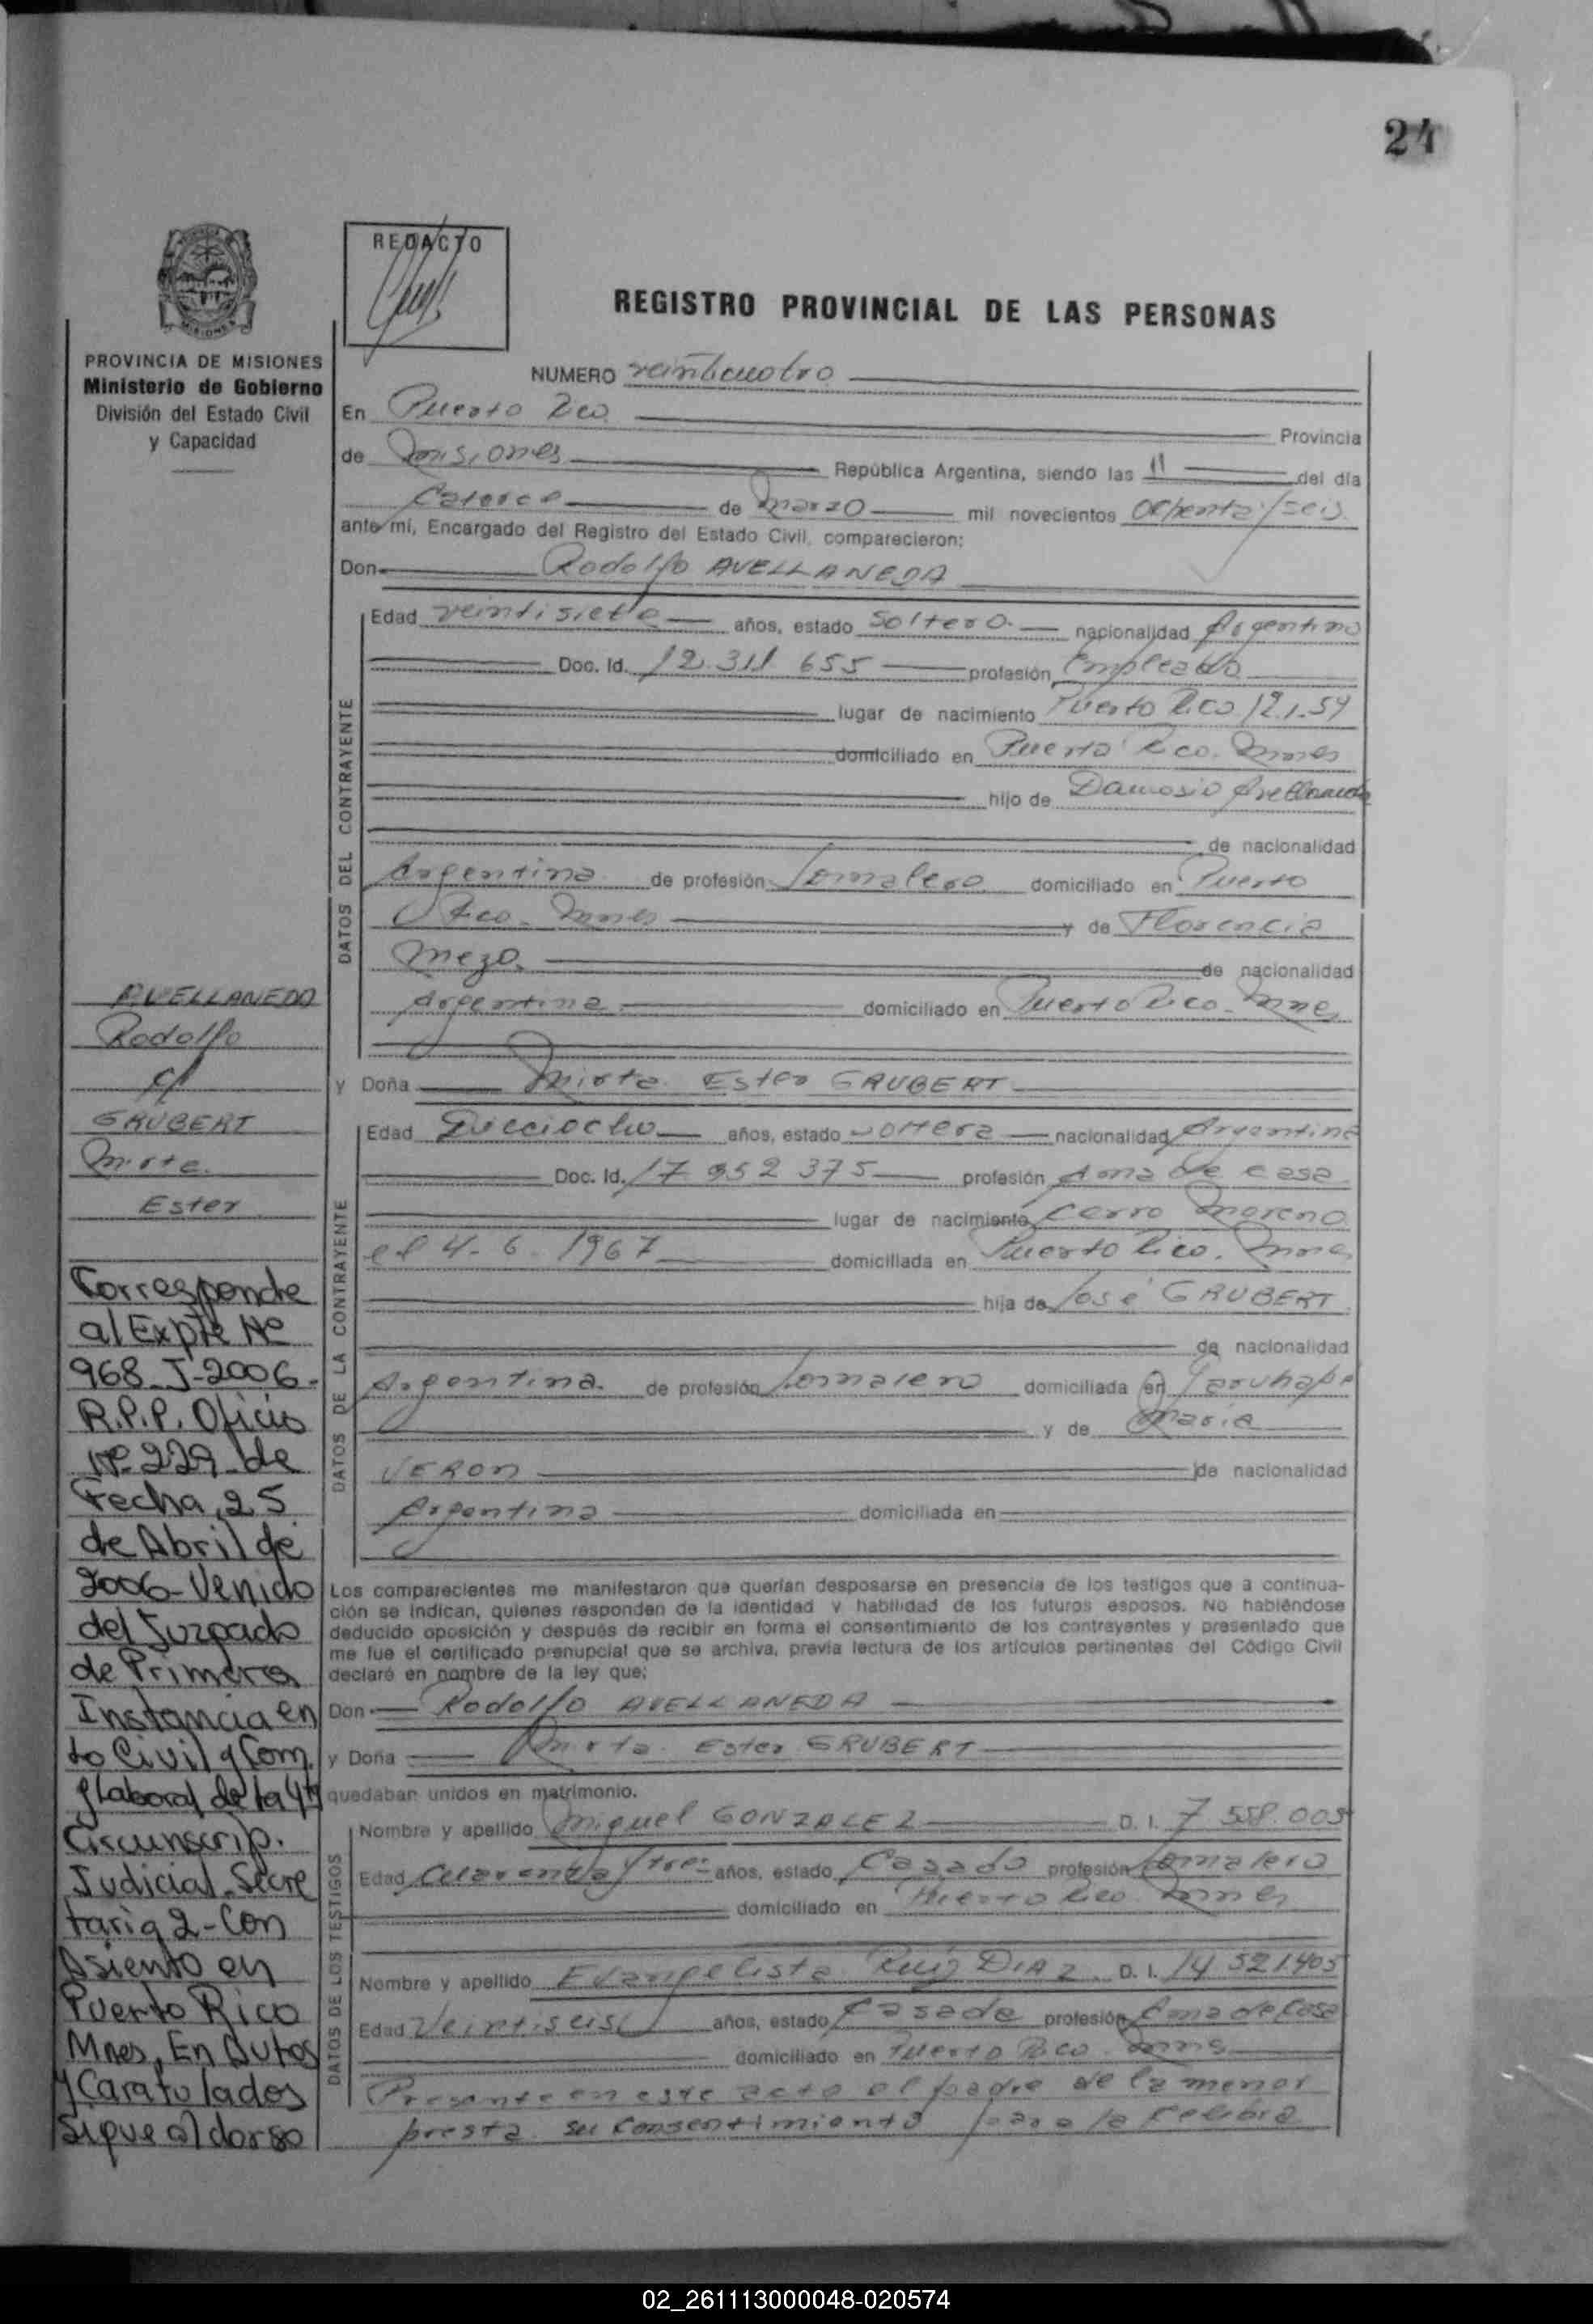 24
REDACTO
REGISTRO PROVINCIAL DE LAS PERSONAS
PROVINCIA DE MISIONES
Ministerio de Gobierno
División del Estado Civil
y Capacidad
NUMERO veinticuatro
En Puerto Rico Provincia
de Misiones República Argentina, siendo las 11 del día
Catorce de Marzo mil novecientos ochenta y seis
ante mí, Encargado del Registro del Estado Civil, comparecieron:
Don Rodolfo AVELLANEDA
DATOS DEL CONTRAYENTE
Edad veintisiete años, estado Soltero nacionalidad Argentino
Doc. Id. 12.311 655 profesión Empleado
lugar de nacimiento Puerto Rico 12.1.59
domiciliado en Puerto Rico. Mnes
hijo de Damasio Avellaneda
de nacionalidad
Argentina de profesión Jornalero domiciliado en Puerto
Rico. Mnes y de Florencia
Meza de nacionalidad
Argentina domiciliado en Puerto Rico. Mnes
AVELLANEDO
Rodolfo
c/
GRUBERT
Mirta
Ester
y Doña Mirta Ester GRUBERT
DATOS DE LA CONTRAYENTE
Edad Dieciocho años, estado soltera nacionalidad Argentina
Doc. Id. 17 952 375 profesión Ama de casa
lugar de nacimiento Cerro Moreno
el 4-6-1967 domiciliada en Puerto Rico. Mnes
hija de José GRUBERT
de nacionalidad
Argentina. de profesión Jornalero domiciliada en Garuhape
y de Maria
VERON de nacionalidad
Argentina domiciliada en
Corresponde
al Expte Nº
968-J-2006.
R.P.P. Oficio
Nº 229 de
Fecha, 25
de Abril de
2006-Venido
del Juzgado
de Primera
Instancia en
lo Civil y Com.
y Laboral de la 4ta
Circunscrip.
Judicial-Secre
taria 2-Con
Asiento en
Puerto Rico
Mnes, En Autos
y Caratulados
Sigue al dorso
Los comparecientes me manifestaron que querían desposarse en presencia de los testigos que a continua-
ción se indican, quienes responden de la identidad y habilidad de los futuros esposos. No habiéndose
deducido oposición y después de recibir en forma el consentimiento de los contrayentes y presentado que
me fue el certificado prenupcial que se archiva, previa lectura de los artículos pertinentes del Código Civil
declaré en nombre de la ley que:
Don Rodolfo AVELLANEDA
y Doña Mirta Ester GRUBERT
quedaban unidos en matrimonio.
DATOS DE LOS TESTIGOS
Nombre y apellido Miguel GONZALEZ D. I. 7 558.005
Edad Cuarenta y tres años, estado Casado profesión Jornalero
domiciliado en Puerto Rico Mnes
Nombre y apellido Evangelista Ruiz DIAZ D. I. 14 521405
Edad Veintiseis años, estado Casada profesión Ama de Casa
domiciliado en Puerto Rico. Mnes
Presente en este acto el padre de la menor
presta su consentimiento para la celebra
02_261113000048-020574